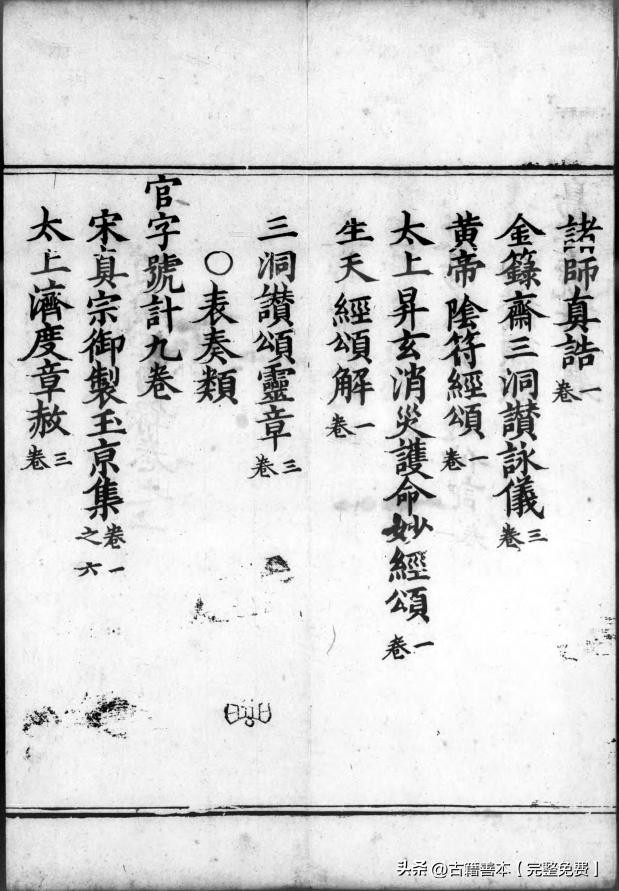 諸師真誥一卷
金籙齋三洞讃詠儀三卷
黄帝陰符經頌一卷
太上昇玄消災護命妙經頌一卷
生天經頌解一卷
三洞讃頌靈章三卷
○表奏類
官字號計九卷
宋真宗御製玉京集卷一之六
太上濟度章赦三卷
头条@古籍善本【完整免费】